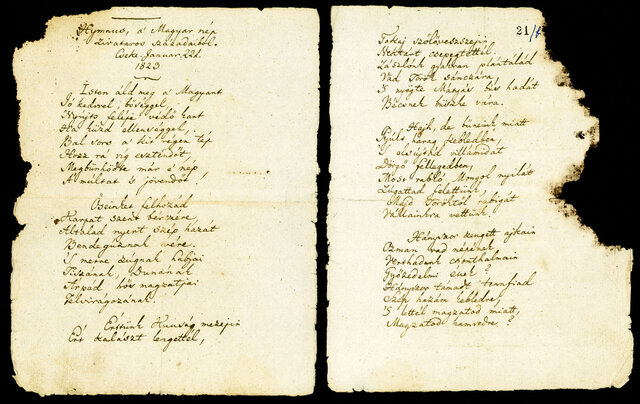 Hymnus, a' Magyar nép
zivataros századaiból.
Cseke. Januar. 22d.
1823
Isten áld meg a' Magyart
Jó kedvvel, bőséggel,
Nyujts feléje védő kart
Ha küzd ellenséggel;
Bal sors a' kit régen tép
Hozz rá víg esztendőt,
Megbünhödte már e' nép
A' multat 's jövendőt!
Őseinket felhozád
Kárpát szent bérczére,
Általad nyert szép hazát
Bendegúznak vére.
'S merre zúgnak habjai
Tiszának, Dunának
Árpád hős magzatjai
Felvirágozának.
Értünk Kunság mezejin
Ért kalászt lengettél,
21/1
Tokaj szőlővesszejin
Nektárt csepegtettél.
Zászlónk gyakran plántálád
Vad Török sánczára,
'S nyögte Mátyás bús hadát
Bécsnek büszke vára.
Hajh, de bűneink miatt
Gyúlt harag kebledben,
'S elsújtád villámidat
Dörgő fellegedben,
Most rabló Mongol nyilát
Zúgattad felettünk,
Majd Töröktől rabigát
Vállainkra vettünk.
Hányszor zengett ajkain
Ozman vad népének
Vert hadunk csonthalmain
Győzedelmi ének?
Hányszor támadt tenfiad
Szép hazám kebledre,
'S lettél magzatod miatt,
Magzatod hamvvedre?